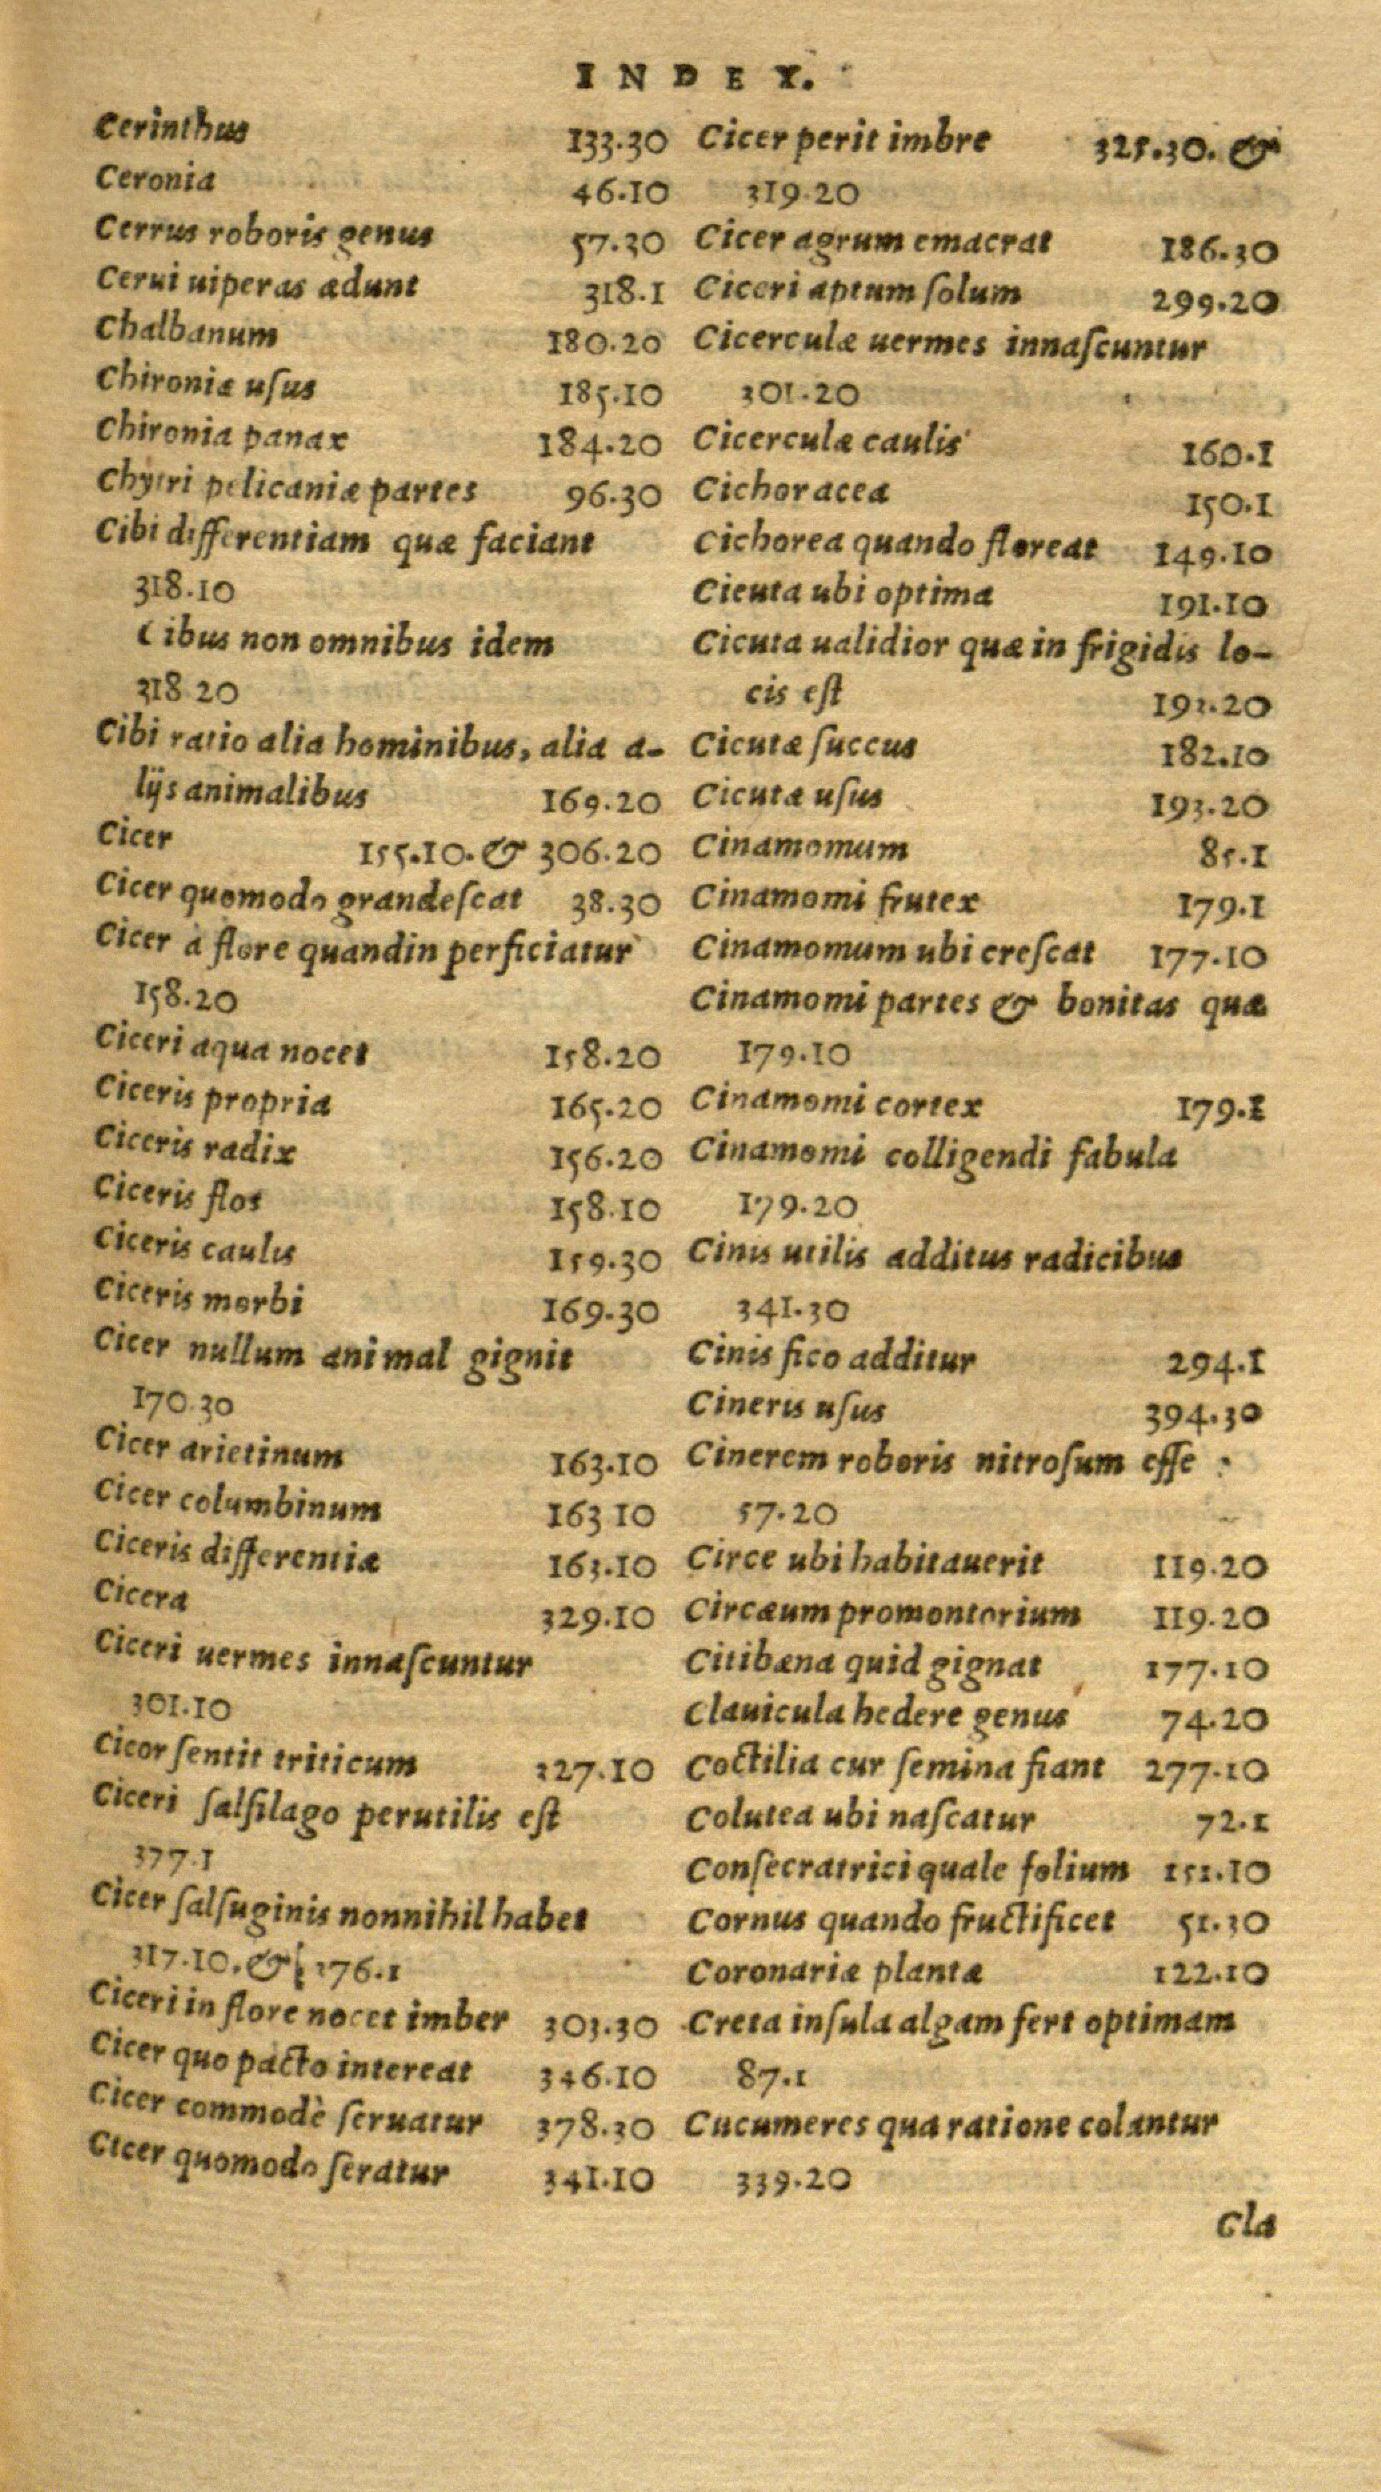 INDEX.
Cerinthus 133.30
Ceronia 46.10
Cerrus roboris genus 57.30
Cerui uiperas ædunt 318.1
Chalbanum 180.20
Chironiæ uſus 185.10
Chironia panax 184.20
Chytri pelicaniæ partes 96.30
Cibi differentiam quæ faciant
318.10
Cibus non omnibus idem
318 20
Cibi ratio alia hominibus, alia a-
lijs animalibus 169.20
Cicer 155.10. & 306.20
Cicer quomodo grandeſcat 38.30
Cicer à flore quandin perficiatur
158.20
Ciceri aqua nocet 158.20
Ciceris propria 165.20
Ciceris radix 156.20
Ciceris flos 158.10
Ciceris caulis 159.30
Ciceris morbi 169.30
Cicer nullum animal gignit
170.30
Cicer arietinum 163.10
Cicer columbinum 163 10
Ciceris differentiæ 163.10
Cicera 329.10
Ciceri uermes innaſcuntur
301.10
Cicor ſentit triticum 327.10
Ciceri ſalſilago perutilis eſt
377.1
Cicer ſalſuginis nonnihil habet
317.10. & 376.1
Ciceri in flore nocet imber 303.30
Cicer quo pacto intereat 346.10
Cicer commodè ſeruatur 378.30
Cicer quomodo ſeratur 341.10
Cicer perit imbre 325.30. &
319.20
Cicer agrum emacrat 186.30
Ciceri aptum ſolum 299.20
Cicerculæ uermes innaſcuntur
301.20
Cicerculæ caulis 160.1
Cichoracea 150.1
Cichorea quando floreat 149.10
Cicuta ubi optima 191.10
Cicuta ualidior quæ in frigidis lo-
cis eſt 192.20
Cicutæ ſuccus 182.10
Cicutæ uſus 193.20
Cinamomum 85.1
Cinamomi frutex 179.1
Cinamomum ubi creſcat 177.10
Cinamomi partes & bonitas quæ
179.10
Cinamomi cortex 179.1
Cinamomi colligendi fabula
179.20
Cinis utilis additus radicibus
341.30
Cinis fico additur 294.1
Cineris uſus 394.30
Cinerem roboris nitroſum eſſe
57.20
Circe ubi habitauerit 119.20
Circæum promontorium 119.20
Citibæna quid gignat 177.10
Clauicula hedere genus 74.20
Coctilia cur ſemina fiant 277.10
Colutea ubi naſcatur 72.1
Conſecratrici quale folium 151.10
Cornus quando fructificet 51.30
Coronariæ plantæ 122.10
Creta inſula algam fert optimam
87.1
Cucumeres qua ratione colantur
339.20
Cla